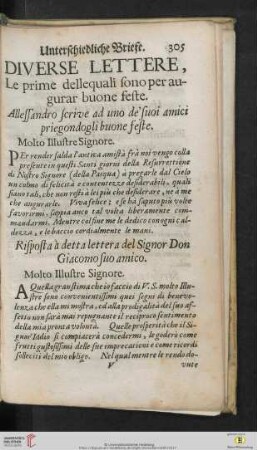 Unterschiedliche Briefe. 305
DIVERSE LETTERE,
Le prime dellequali sono per au-
gurar buone feste.
Allessandro scrive ad uno de' suoi amici
priegondogli buone feste.
Molto Illustre Signore.
PEr render salda l'antica amistà frà noi vengo colla
presente in questi Santi giorni della Resurrettione
di Nostro Signore (della Pasqua) à pregarle dal Cielo
un colmo di felicità e contentezze desiderabili, quali
siano tali, che non resti à lei più che desiderare, nè à me
che augurarle. Viva felice; e se hà saputo più volte
favorirmi, sappia anco tal volta liberamente com-
mandarmi. Mentre col fine me le dedico con ogni ca-
ldezza, e le baccio cordialmente le mani.
Risposta à detta lettera del Signor Don
Giacomo suo amico.
Molto Illustre Signore.
A Quella grandissima che io faccio di V. S. molto Illu-
stre sono convenientissimi quei segni di benevo-
lenza che ella mi mostra, ed alla prodigalità del suo af-
fetto non sarà mai repugnante il reciproco sentimento
della mia pronta volontà. Quelle prosperità che il Si-
gnor Iddio si compiacerà concedermi, le goderò come
frutti gustosissimi delle sue imprecationi e come ricordi
solleciti del mio obligo. Nel qual mentre le rendo do-
V vute